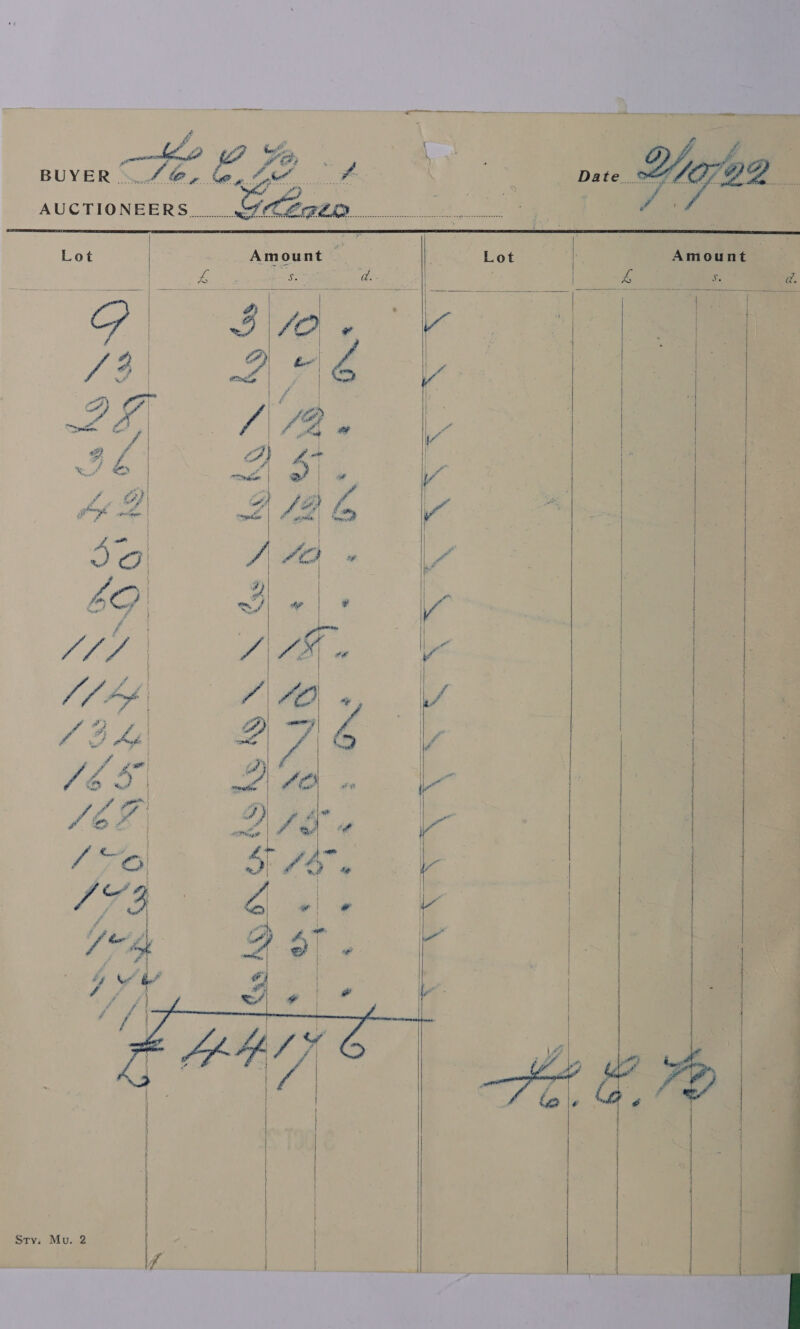 BUYER
Date 2/10/22
AUCTIONEERS
Lot Amount Lot Amount
£ s. d. £ s. d.
9 3 10 .
13 2 7 6
28 1 12 .
36 2 5 .
42 2 12 6
50 1 10 .
69 3 . .
111 1 18 .
114 1 10 .
134 2 7 6
165 2 10 .
168 2 15 .
170 5 15 .
173 6 . .
174 2 5 .
177 3 . .
£ 44 17 6
Sty. Mu. 2